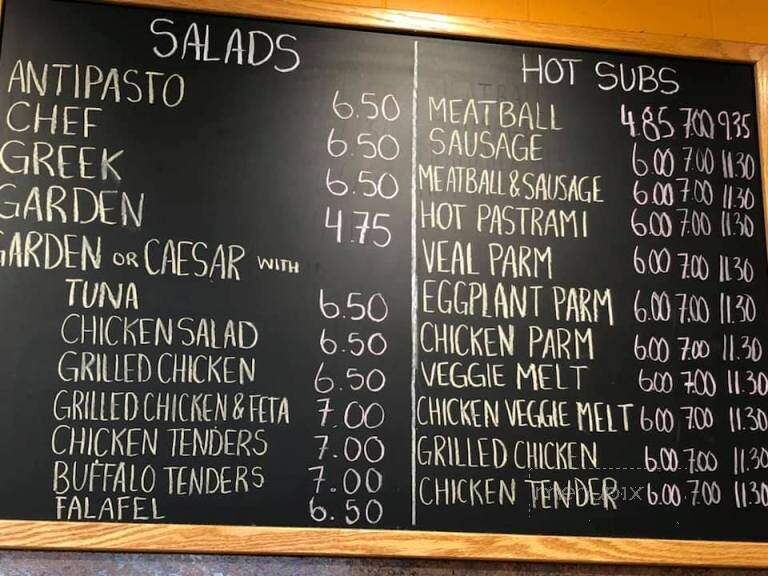 SALADS
ANTIPASTO 6.50
CHEF 6.50
GREEK 6.50
GARDEN 4.75
GARDEN OR CAESAR WITH
TUNA 6.50
CHICKEN SALAD 6.50
GRILLED CHICKEN 6.50
GRILLED CHICKEN & FETA 7.00
CHICKEN TENDERS 7.00
BUFFALO TENDERS 7.00
FALAFEL 6.50
HOT SUBS
MEATBALL 4.85 7.00 9.35
SAUSAGE 6.00 7.00 11.30
MEATBALL & SAUSAGE 6.00 7.00 11.30
HOT PASTRAMI 6.00 7.00 11.30
VEAL PARM 6.00 7.00 11.30
EGGPLANT PARM 6.00 7.00 11.30
CHICKEN PARM 6.00 7.00 11.30
VEGGIE MELT 6.00 7.00 11.30
CHICKEN VEGGIE MELT 6.00 7.00 11.30
GRILLED CHICKEN 6.00 7.00 11.30
CHICKEN TENDER 6.00 7.00 11.30
menupix